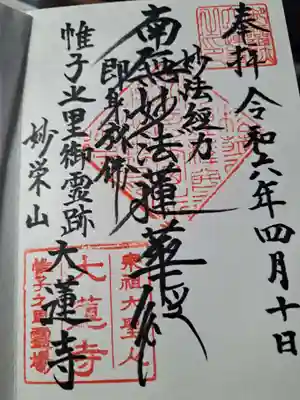 奉拝
令和六年四月十日
妙法經力
南無妙法蓮華経
即身成佛
帷子之里御霊跡
大蓮寺
妙栄山
宗祖大聖人
大蓮寺
帷子之里霊場